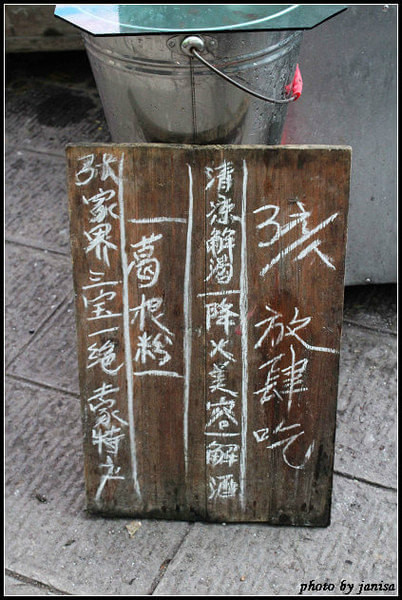 孩放肆吃
清凉解渴—降火美容—解酒
葛根粉
张家界三宝一绝土家特产
photo by janisa